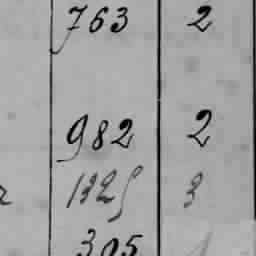 763 2
982 2
1325 3
305 1